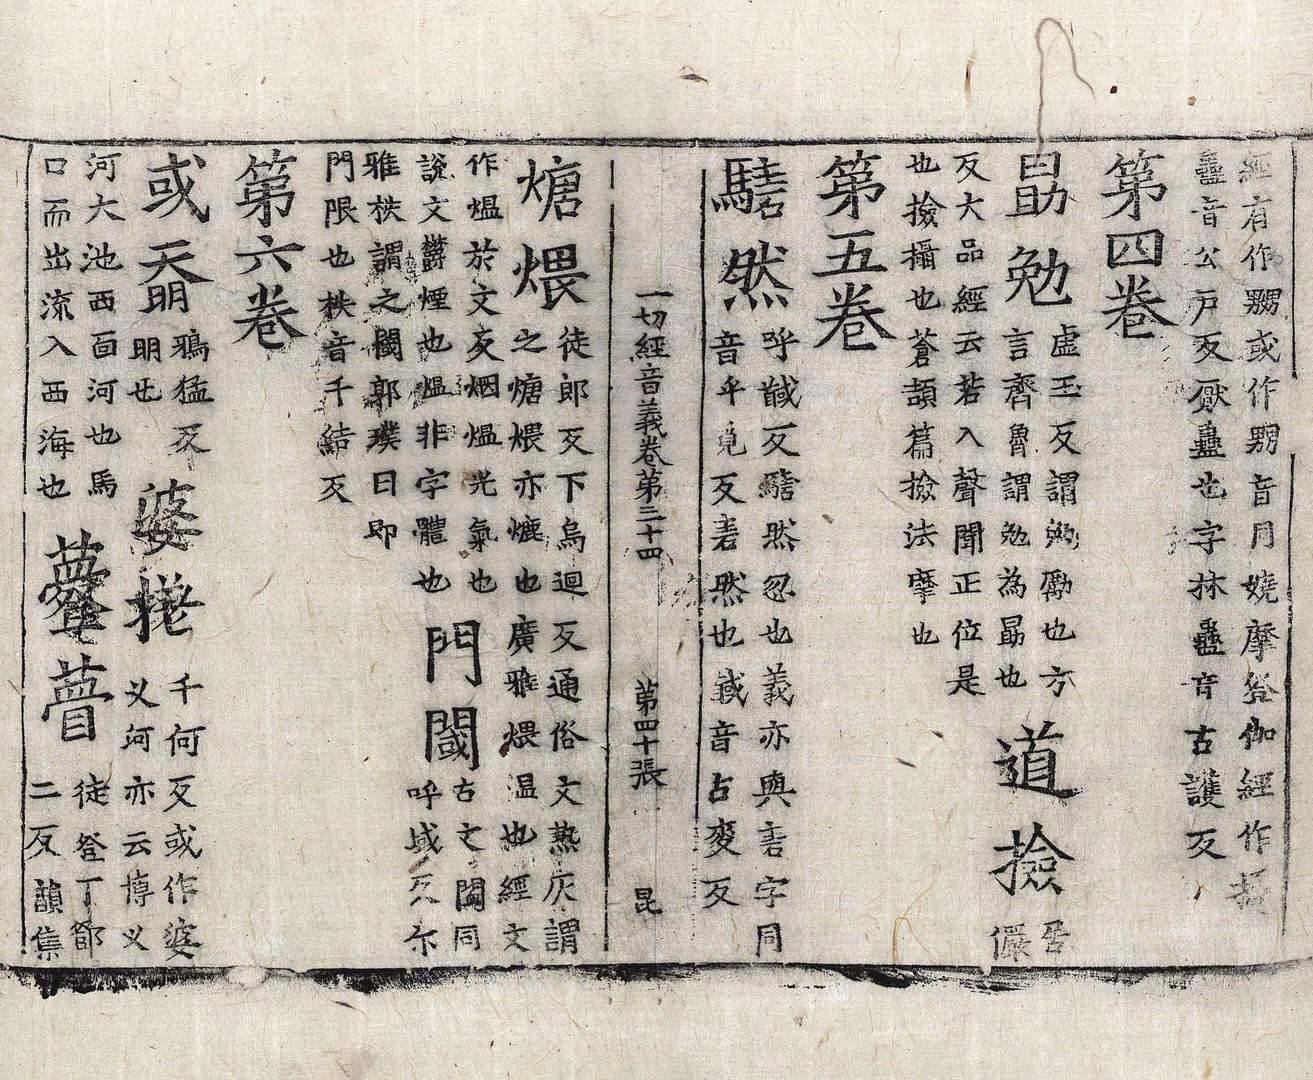 經有作嬲或作嫐音同嬈摩登伽經作
蠱音公戶反厭蠱也字林蠱音古護反
第四卷
勗勉
虛玉反謂勉勵也方
言齊魯謂勉為勗也
道撿
居
儼
反大品經云若入聲聞正位是
也撿攝也蒼頡篇撿法摩也
第五卷
騞然
呼馘反騞然忽也義亦與砉字同
音乎覓反砉然也馘音古麥反
一切經音義卷第三十四 第四十張 昆
煻煨
徒郎反下烏迴反通俗文熱灰謂
之煻煨亦爊也廣雅煨温也經文
作煴於文亥烟煴光氣也
說文鬱煙也煴非字體也
門閾
古文閾同
呼域反尔
雅柣謂之閾郭璞曰即
門限也柣音千結反
第六卷
或奣
鴉猛反
明也
婆㨋
千何反或作婆
义河亦云博义
河大池西面河也馬
口而出流入西海也
薹瞢
徒登丁鄧
二反韻集